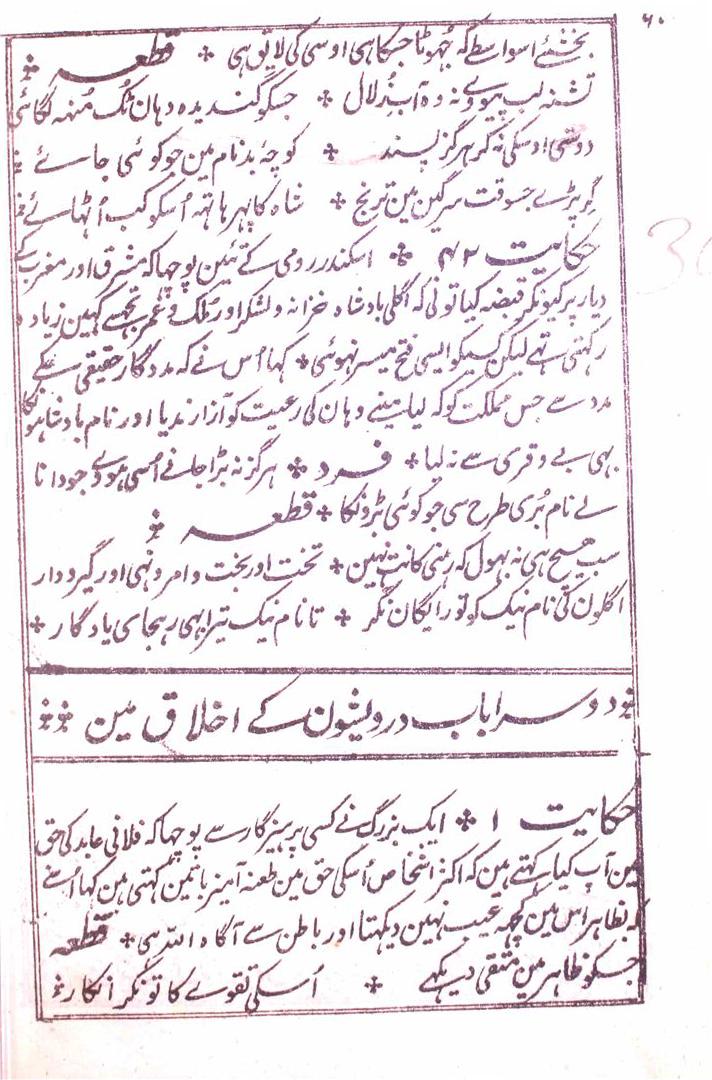 ۶۰
بخشئے اسواسطے کہ جُھوٹا جسکا ہی اوسی کی لایق ہی ❊ قطعہ ❊
تشنہ لب پیوے نہ وہ آبِ زُلال ❊ جسکو گندیدہ دہان ٹک مُنہہ لگائے
دوستی اوسکی نہ کر ہرگز پسند ❊ کوچۂ بدنام مین جو کوئی جائے ❊
گر پڑے جسوقت سرگین مین ترنج ❊ شاہ کا پھر ہاتھہ اُسکو کب اُٹھائے ❊
حکایت ۴۲ ❊ اسکندر رومی کے تئین پوچھا کہ مشرق اور مغرب کے
دیار پر کیونکر قبضہ کیا تونی کہ اگلی بادشاہ خزانہ و لشکر اور مُلک و عمر تجھسے کہین زیادہ
رکھتی تھے لیکن کسیکو ایسی فتح میسر نہوئی ❊ کہا اُس نے کہ مددگار حقیقی کے
مدد سے جس مملکت کو کہ لیا مینے وہان کی رعیت کو آزار ندیا اور نام بادشاہونکا
بھی بے وقری سے نہ لیا ❊ فرد ❊ ہرگز نہ بڑا جانے اُسی ہووے جو دانا
لے نام بُری طرح سی جو کوئی بڑونکا ❊ قطعہ ❊
سب ہیچ ہی نہ بھول کہ رہنی کا نت نہین ❊ تخت اور بخت و امر و نہی اور گیر و دار
اگلون کی نام نیک کو تو رایگان نکر ❊ تا نام نیک تیرا بھی رہجای یادگار ❊
دوسرا باب درویشون کے اخلاق مین ❊❊
حکایت ۱ ❊ ایک بزرگ نے کسی پرہیزگار سے پوچھا کہ فلانی عابد کی حق
مین آپ کیا کہتے ہین کہ اکثر اشخاص اُسکی حق مین طعنہ آمیز باتین کہتی ہین کہا اُسنے
کہ بظاہر اس مین کُچھہ عیب نہین دیکھتا اور باطن سے آگاہ اللہ ہی ❊ قطعہ
جسکو ظاہر مین متقی دیکھے ❊ اُسکی تقوے کا تو نکر انکار ❊